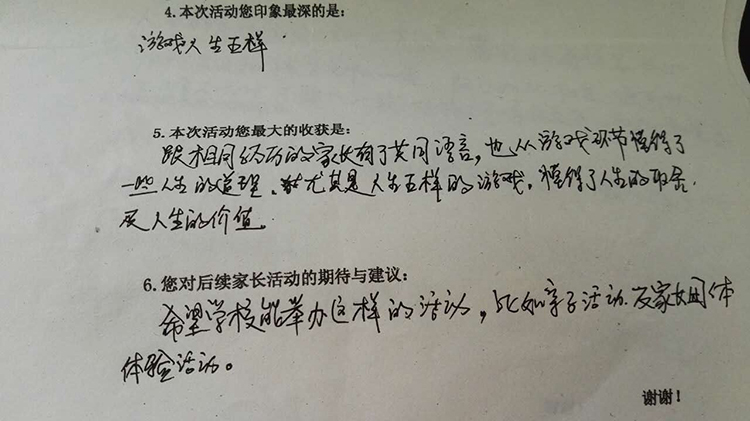 4.本次活动您印象最深的是:
游戏人生五样
5.本次活动您最大的收获是:
跟相同经历的家长有了共同语言,也从游戏环节懂得了
一些人生的道理、尤其是人生五样的游戏,懂得了人生的取舍
及人生的价值。
6.您对后续家长活动的期待与建议:
希望学校能举办这样的活动,比如亲子活动.及家长团体
体验活动。
谢谢!